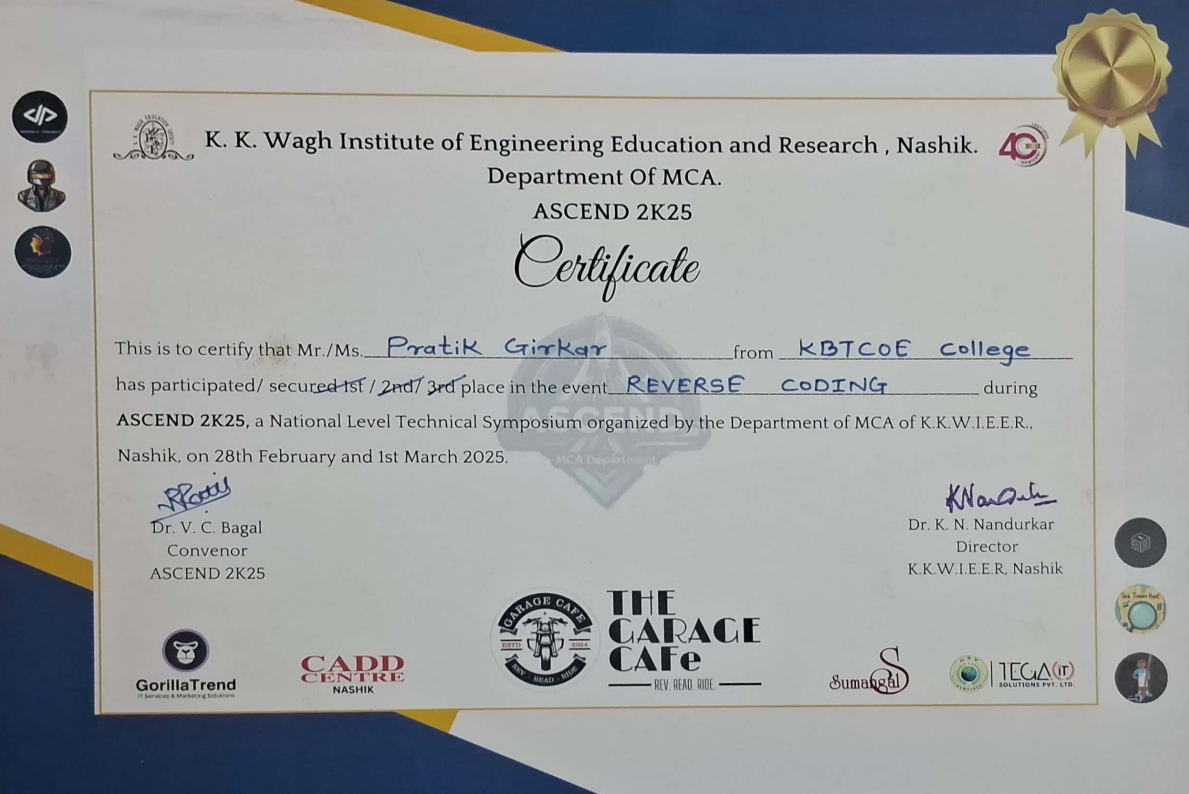 K. K. Wagh Institute of Engineering Education and Research , Nashik.
Department Of MCA.
ASCEND 2K25
Certificate
This is to certify that Mr./Ms. Pratik Girkar from KBTCOE College
has participated/ secured 1st / 2nd/ 3rd place in the event REVERSE CODING during
ASCEND 2K25, a National Level Technical Symposium organized by the Department of MCA of K.K.W.I.E.E.R.,
Nashik, on 28th February and 1st March 2025.
ASCEND
MCA Department
Dr. V. C. Bagal
Convenor
ASCEND 2K25
Dr. K. N. Nandurkar
Director
K.K.W.I.E.E.R, Nashik
GorillaTrend
IT Services & Marketing Solutions
CADD
CENTRE
NASHIK
GARAGE CAFE
ESTD 2024
REV - READ - RIDE
THE
GARAGE
CAFe
REV. READ. RIDE.
Sumangal
TEGA (iT)
SOLUTIONS PVT. LTD.